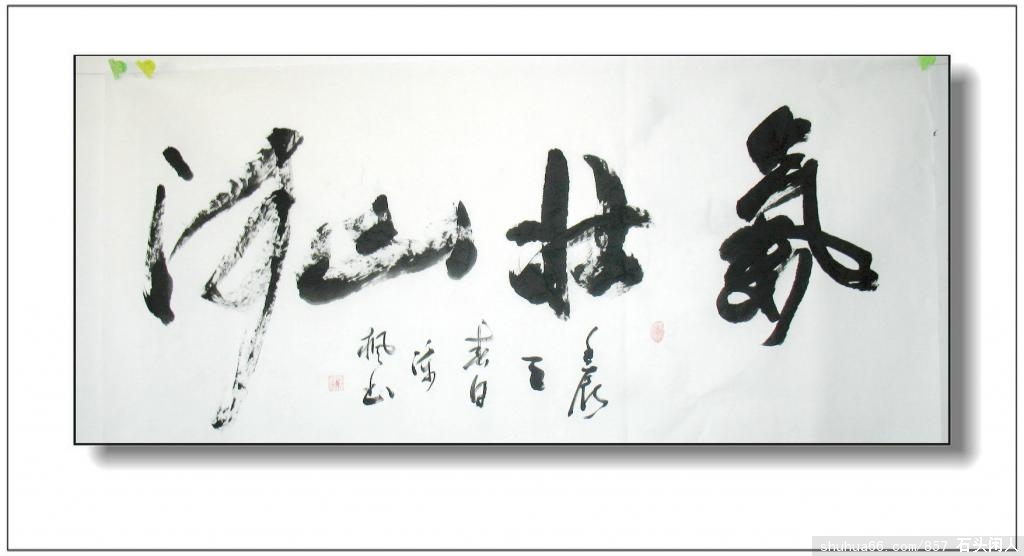 氣壯山河
壬辰
春日
枫书
shuhua66.com/857 石头闲人